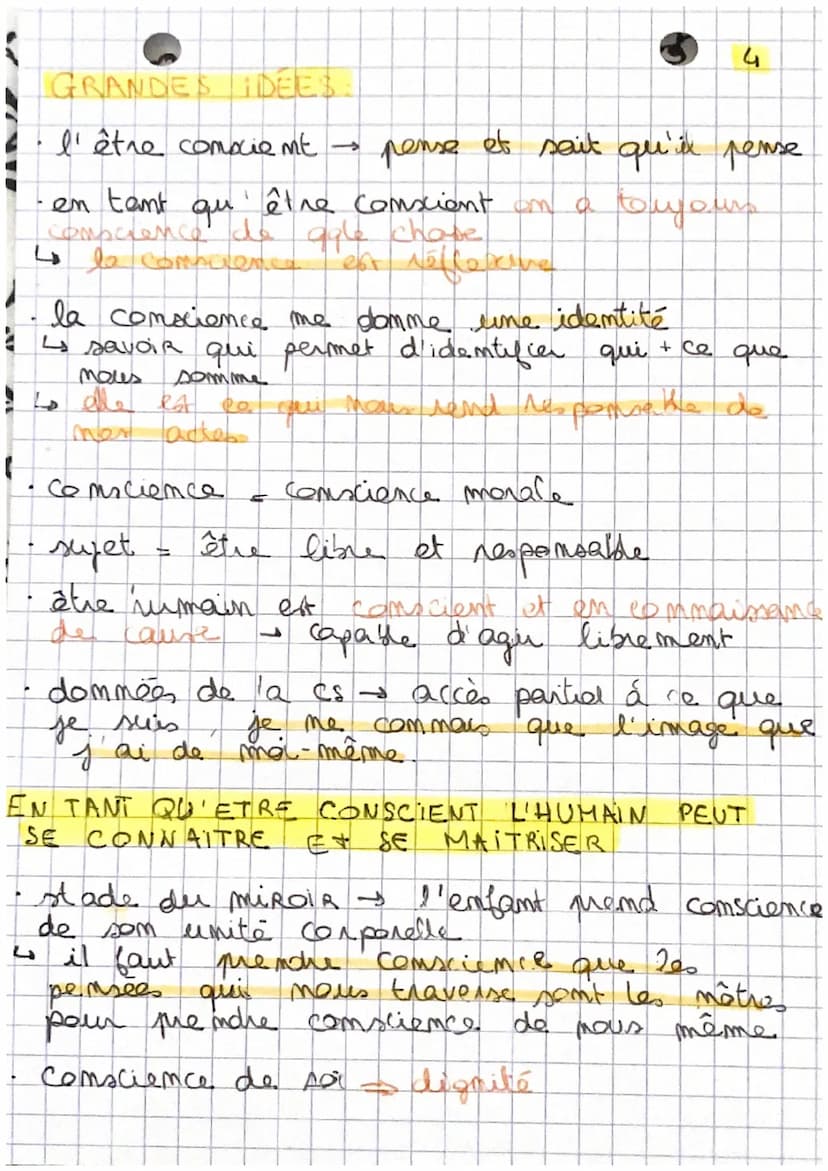 4
GRANDES IDÉES :
· l'être conscient → pense et sait qu'il pense
· en tant qu'être conscient on a toujours
conscience de qqle chose
↳ la conscience est réflexive
· la conscience me donne une identité
↳ savoir qui permet d'identifier qui + ce que
nous somme
↳ elle est ce qui nous rend responsable de
nos actes
· conscience = conscience morale
· sujet = être libre et responsable
· être humain est conscient et en connaissance
de cause → capable d'agir librement
· données de la cs → accès partiel á ce que
je suis, je me connais que l'image que
j'ai de moi-même.
EN TANT QU'ETRE CONSCIENT L'HUMAIN PEUT
SE CONNAITRE Et SE MAITRISER
· stade du miroir → l'enfant prend conscience
de son unité corporelle
↳ il faut prendre conscience que les
pensées qui nous traverse sont les nôtres
pour prendre conscience de nous même
· Conscience de soi ⇒ dignité